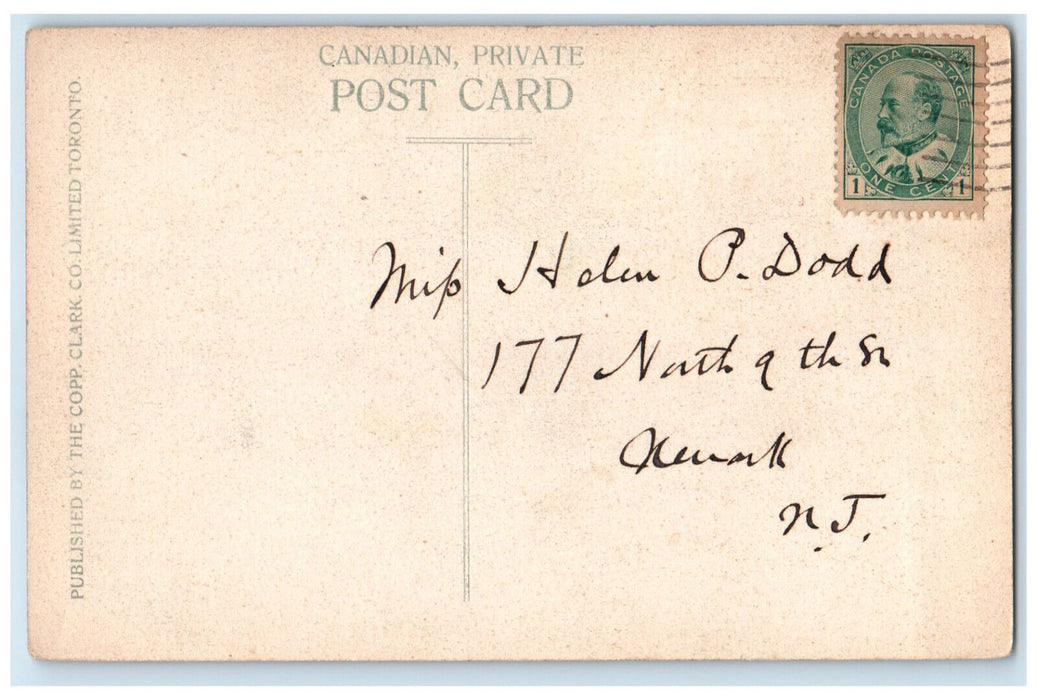 CANADIAN, PRIVATE
POST CARD
PUBLISHED BY THE COPP, CLARK CO. LIMITED TORONTO.
CANADA POSTAGE
ONE CENT
1 1
Miss Helen P. Dodd
177 North 9th St
Newark
N.J.